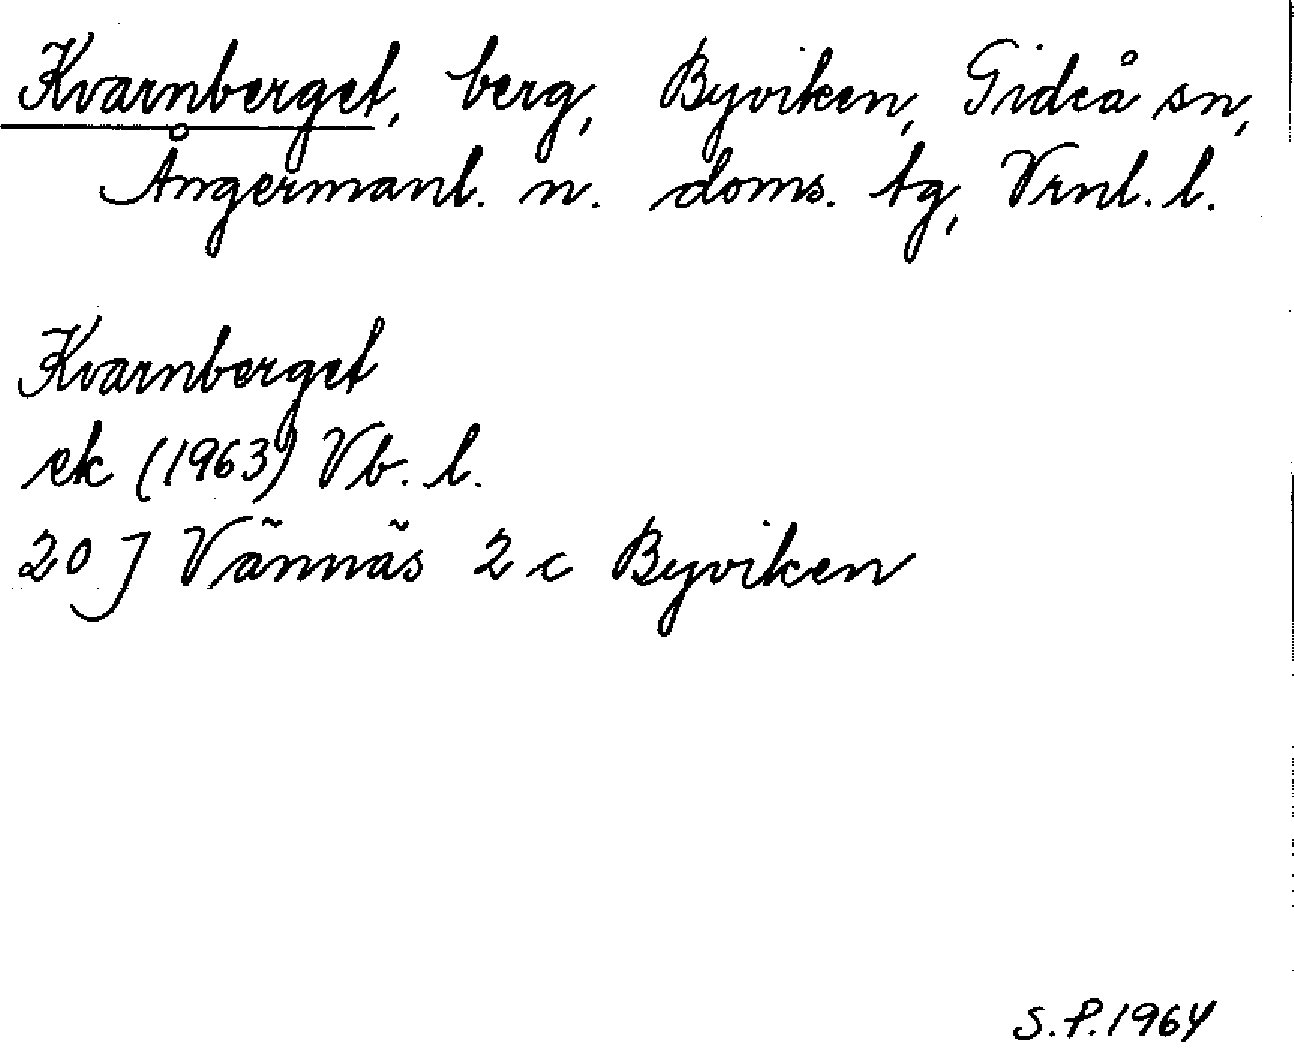 Kvarnberget, berg, Byviken, Gideå sn,
Ångermanl. n. doms. tg, Vrnl. l.
Kvarnberget
ek (1963) Vb. l.
20 J Vännäs 2 c Byviken
S.P. 1964